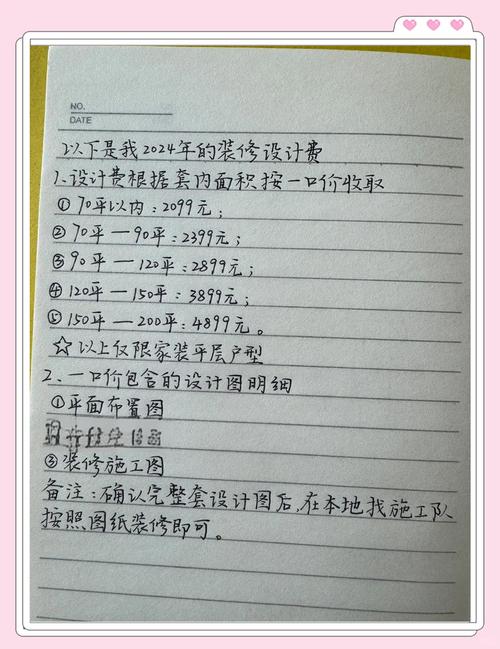 NO.
DATE
以下是我2024年的装修设计费
1.设计费根据套内面积按一口价收取
①70平以内:2099元;
②70平—90平:2399元;
③90平—120平:2899元;
④120平—150平:3899元;
⑤150平—200平:4899元。
☆以上仅限家装平层户型
2、一口价包含的设计图明细
①平面布置图
③装修施工图
备注:确认完整套设计图后,在本地找施工队
按照图纸装修即可。